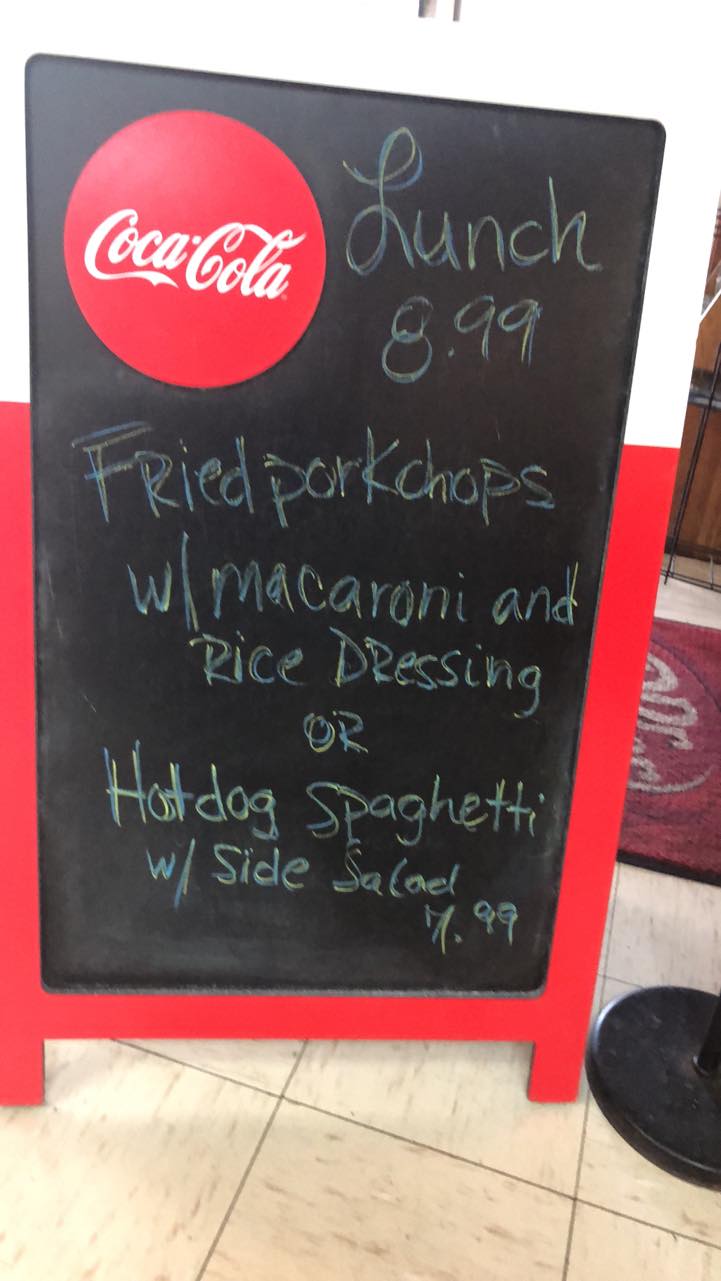 Coca-Cola
Lunch
8.99
Fried porkchops
w/ macaroni and
Rice Dressing
OR
Hotdog Spaghetti
w/ Side Salad
7.99